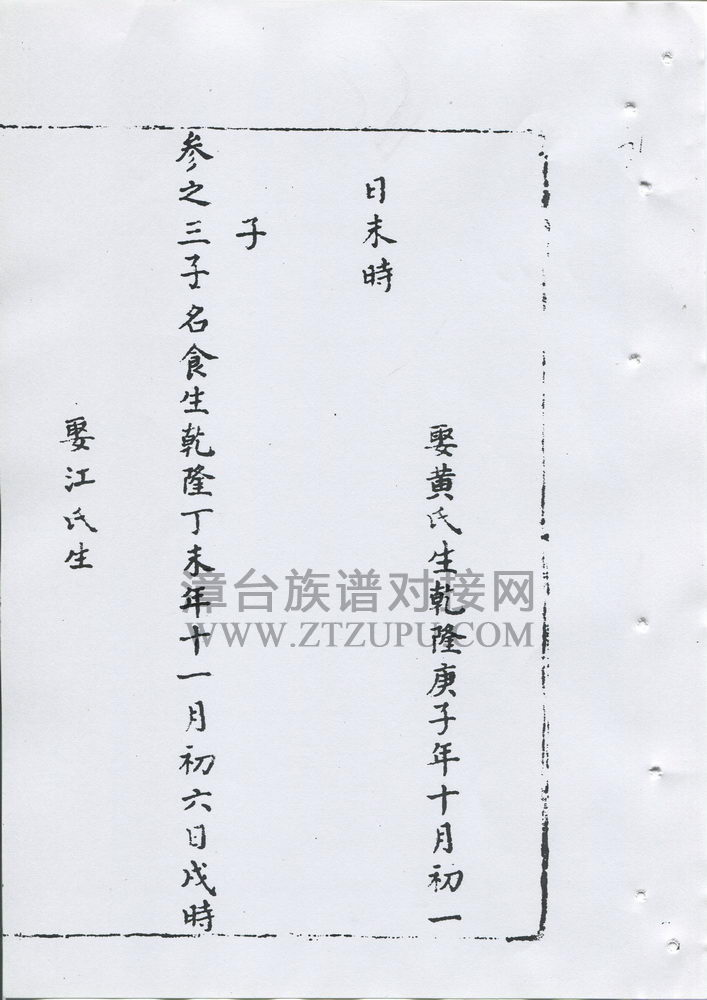 娶黄氏生乾隆庚子年十月初一
日未時
子
参之三子名食生乾隆丁未年十一月初六日戌時
娶江氏生
漳台族谱对接网
WWW.ZTZUPU.COM